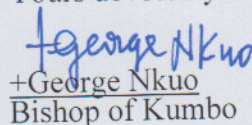 +George Nkuo
+George Nkuo
Bishop of Kumbo